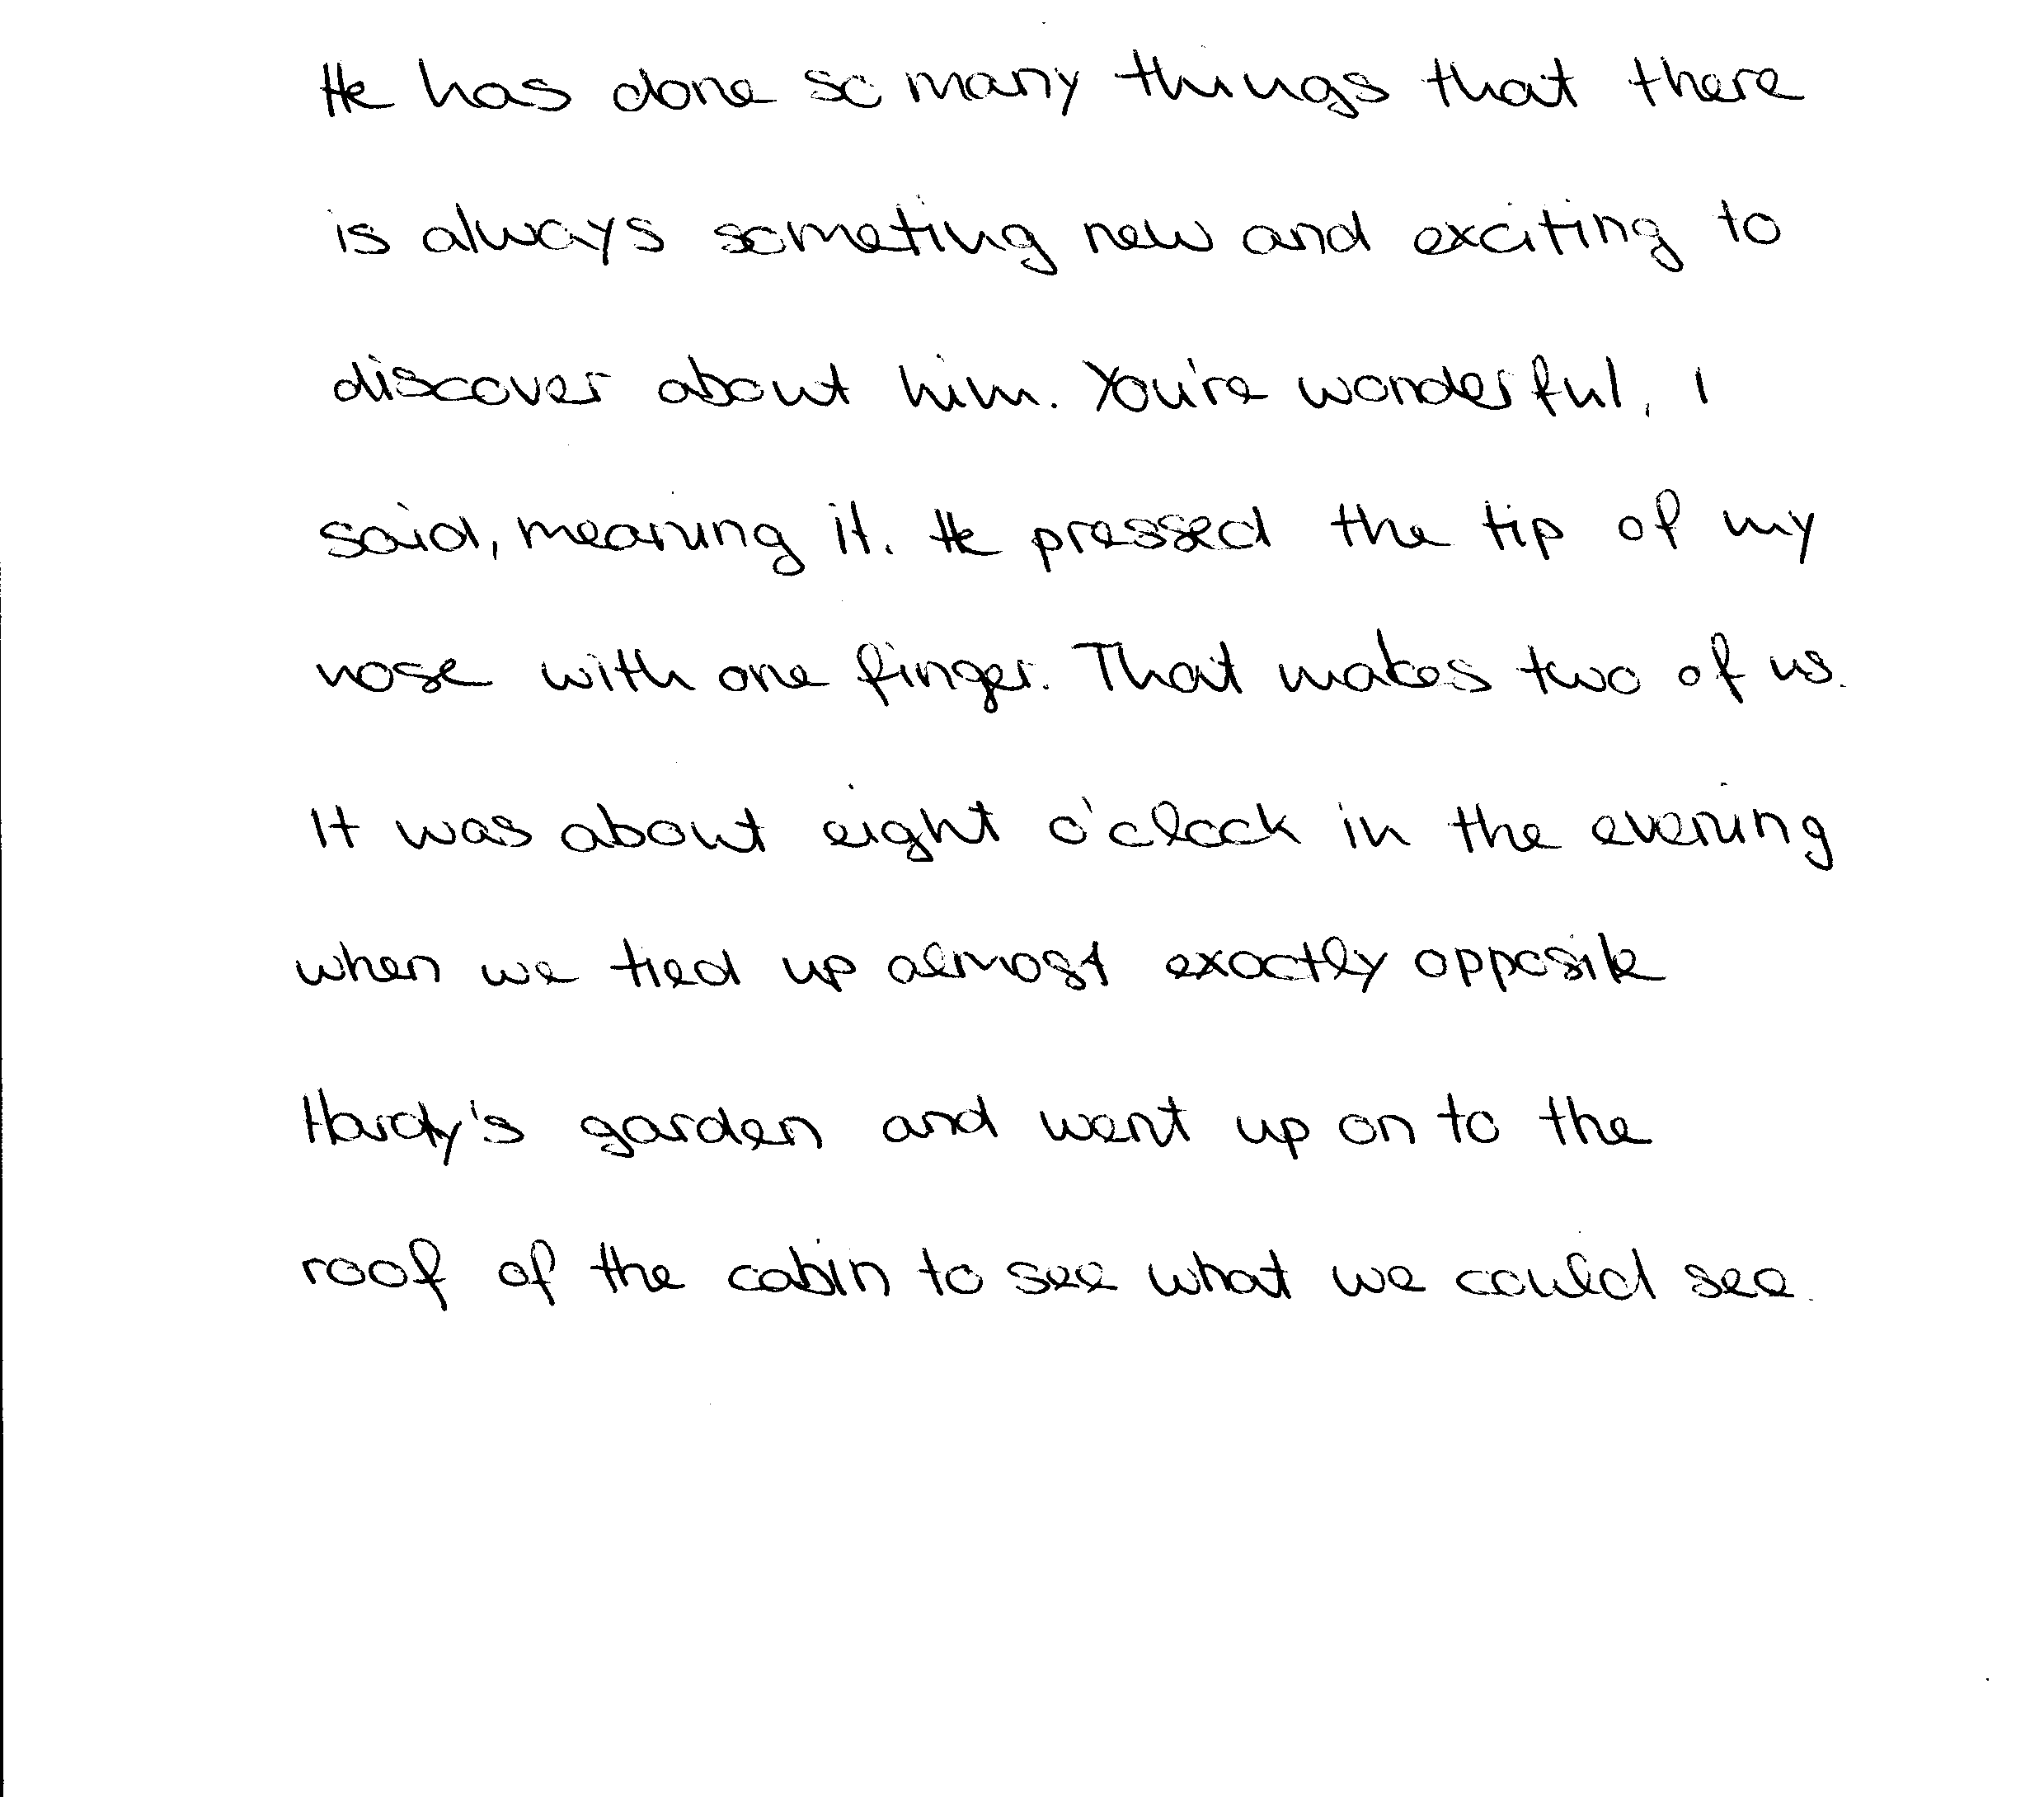 He has done so many things that there
is always someting new and exciting to
discover about him. You're wonderful, I
said, meaning it. He pressed the tip of my
nose with one finger. That makes two of us.
It was about eight o'clock in the evening
when we tied up almost exactly opposite
Hardy's garden and went up on to the
roof of the cabin to see what we could see.